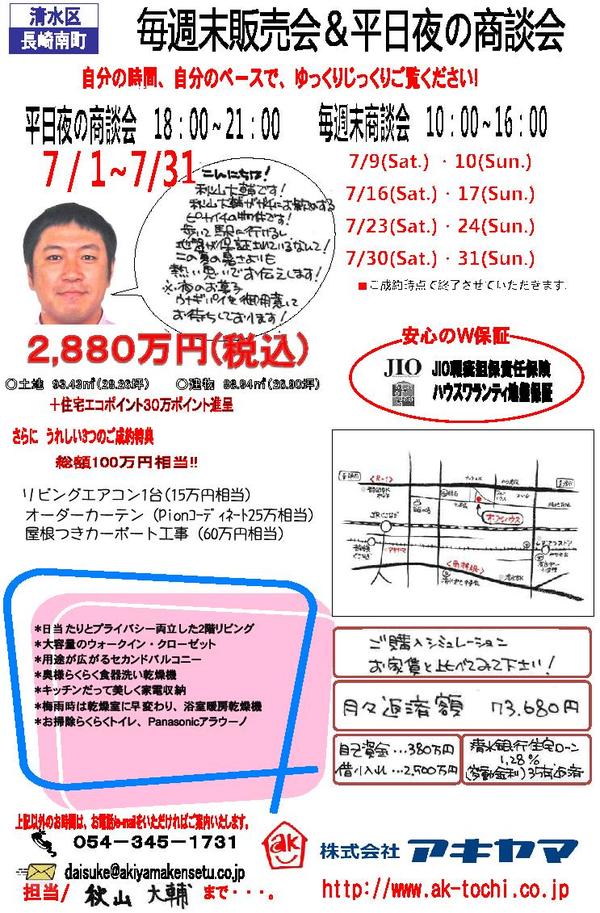 清水区
長崎南町
毎週末販売会＆平日夜の商談会
自分の時間、自分のペースで、ゆっくりじっくりご覧ください!
平日夜の商談会　18：00~21：00
毎週末商談会　10：00~16：00
7/1~7/31
7/9(Sat.)・10(Sun.)
7/16(Sat.)・17(Sun.)
7/23(Sat.)・24(Sun.)
7/30(Sat.)・31(Sun.)
■ご成約時点で終了させていただきます.
こんにちは!
秋山大輔です!
秋山大輔が特にお勧めする
歩いて駅に行けるし
地盤が保証されているなんて!
この夏の暑さよりも
熱い思いでお伝えします!
※夜のお菓子
ウナギパイを御用意して
お待ちしております!
2,880万円(税込)
○土地　93.43㎡(28.26坪)　○建物　88.94㎡(26.90坪)
＋住宅エコポイント30万ポイント進呈
安心のW保証
JIO
JIO瑕疵担保責任保険
ハウスワランティ地盤保証
さらに　うれしい3つのご成約特典
総額100万円相当!!
リビングエアコン1台(15万円相当)
オーダーカーテン（Pionｺｰﾃﾞｨﾈｰﾄ25万相当）
屋根つきカーポート工事（60万円相当）
＊日当たりとプライバシー両立した2階リビング
＊大容量のウォークイン・クローゼット
＊用途が広がるセカンドバルコニー
＊奥様らくらく食器洗い乾燥機
＊キッチンだって美しく家電収納
＊梅雨時は乾燥室に早変わり、浴室暖房乾燥機
＊お掃除らくらくトイレ、Panasonicアラウーノ
ご購入シュミレーション
お家賃と比べてみて下さい!
月々返済額　73.680円
自己資金…380万円
借り入れ…2,500万円
清水銀行住宅ローン
1,28%
(変動金利)35年返済
上記以外のお時間は、お電話/e-mailをいただければご案内いたします。
054-345-1731
daisuke@akiyamakensetu.co.jp
担当/　秋山 大輔　まで・・・。
ak
株式会社 アキヤマ
http://www.ak-tochi.co.jp